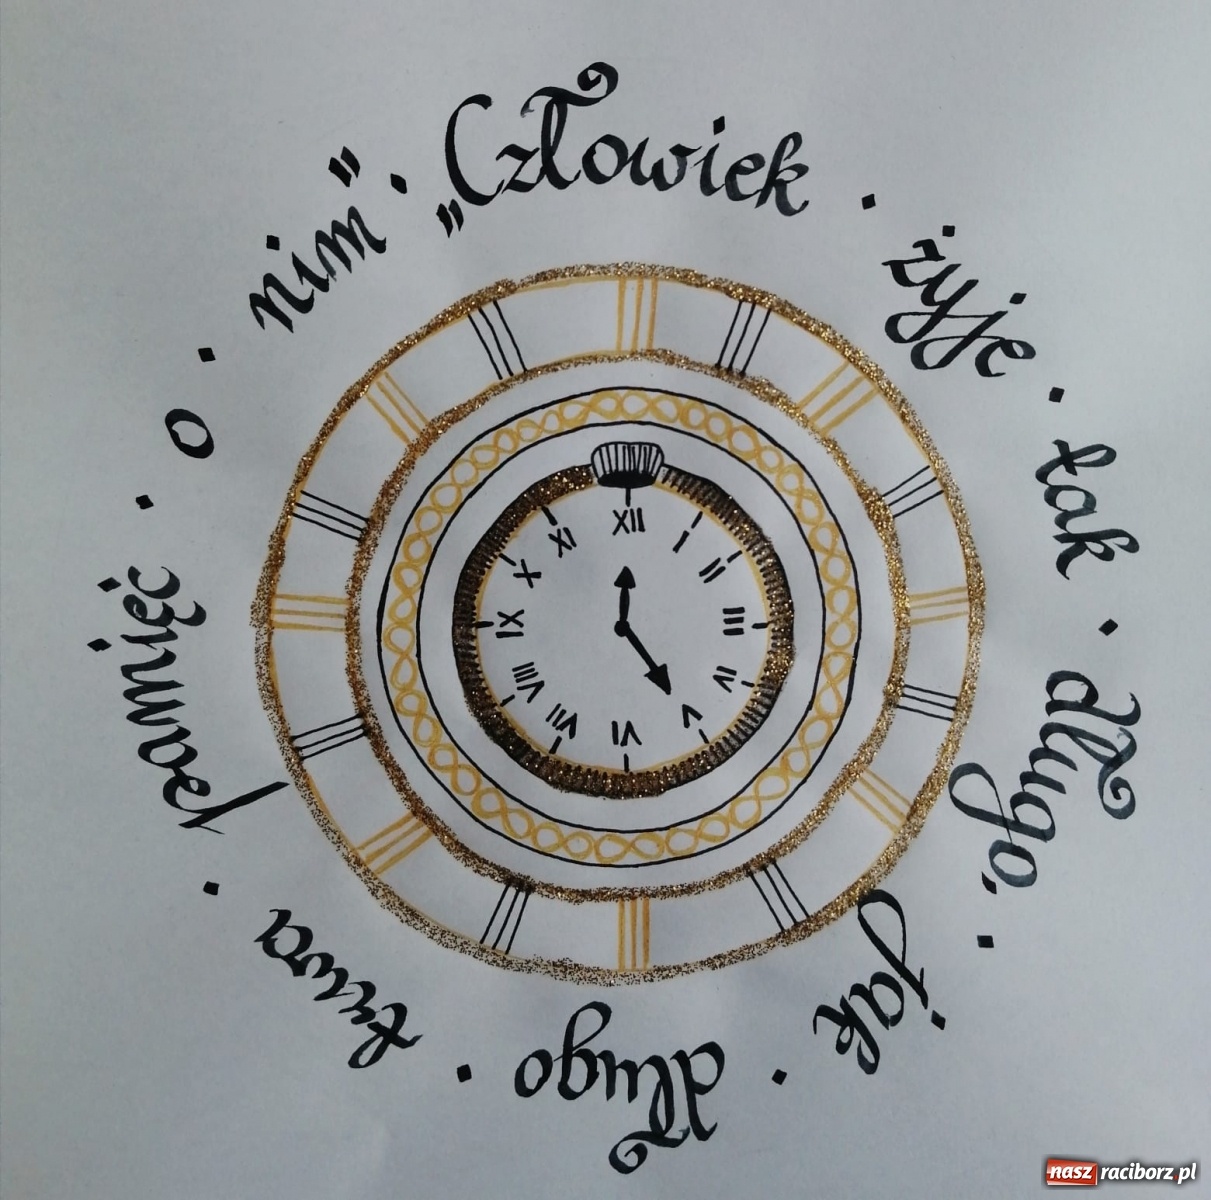 „Człowiek · żyje · tak · długo, · jak · długo · trwa · pamięć · o · nim” ·
XII
I
II
III
IV
V
VI
VII
VIII
IX
X
XI
nasz raciborz.pl